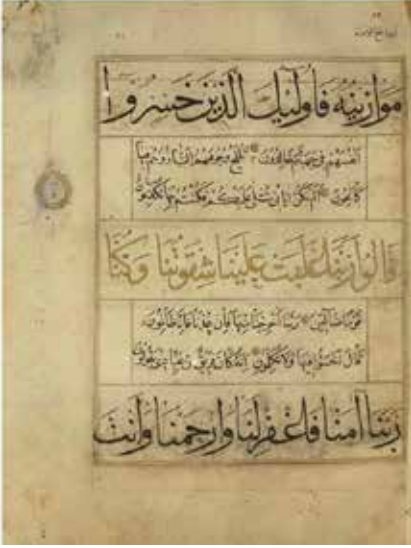 موازينه فاولئك الذين خسروا
انفسهم في جهنم خالدون تلفح وجوههم النار وهم فيها
كالحون الم تكن اياتي تتلى عليكم فكنتم بها تكذبون
قالوا ربنا غلبت علينا شقوتنا وكنا
قوما ضالين ربنا اخرجنا منها فان عدنا فانا ظالمون
قال اخسئوا فيها ولا تكلمون انه كان فريق من عبادي يقولون
ربنا امنا فاغفر لنا وارحمنا وانت